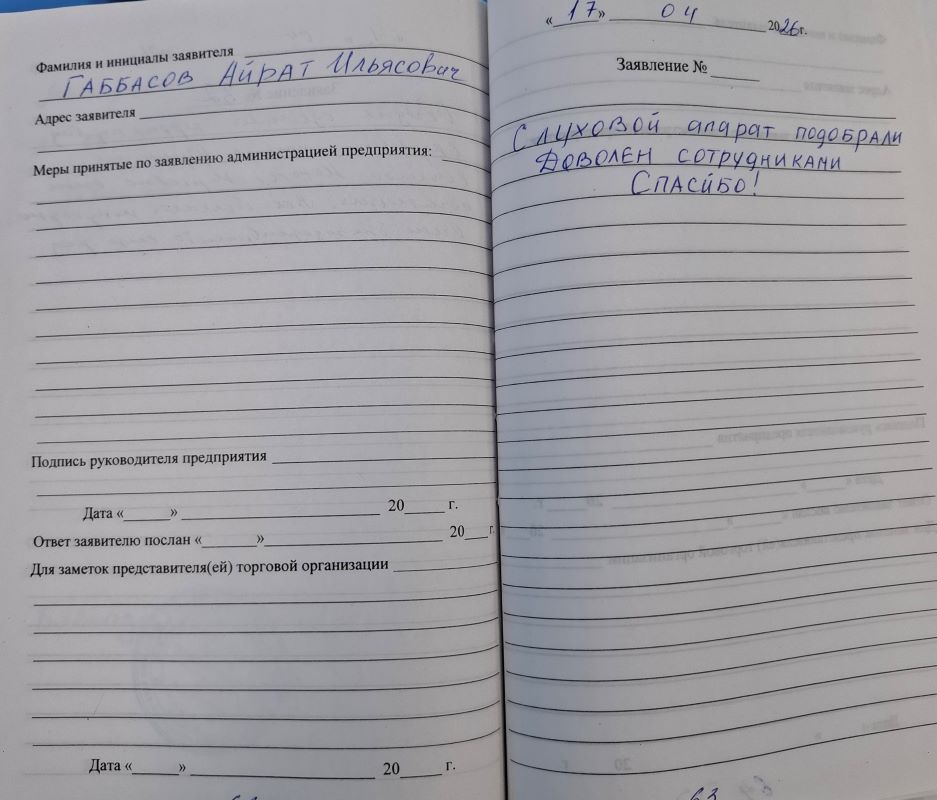 Фамилия и инициалы заявителя
ГАББАСОВ АЙРАТ ИЛЬЯСОВИЧ
Адрес заявителя
Меры принятые по заявлению администрацией предприятия:
Подпись руководителя предприятия
Дата «______» ______ 20____ г.
Ответ заявителю послан «______» ______ 20___ г.
Для заметок представителя(ей) торговой организации
Дата «______» ______ 20____ г.
«17» 04 2026г.
Заявление № ______
СЛУХОВОЙ АПАРАТ ПОДОБРАЛИ
ДОВОЛЕН СОТРУДНИКАМИ
СПАСИБО!
63